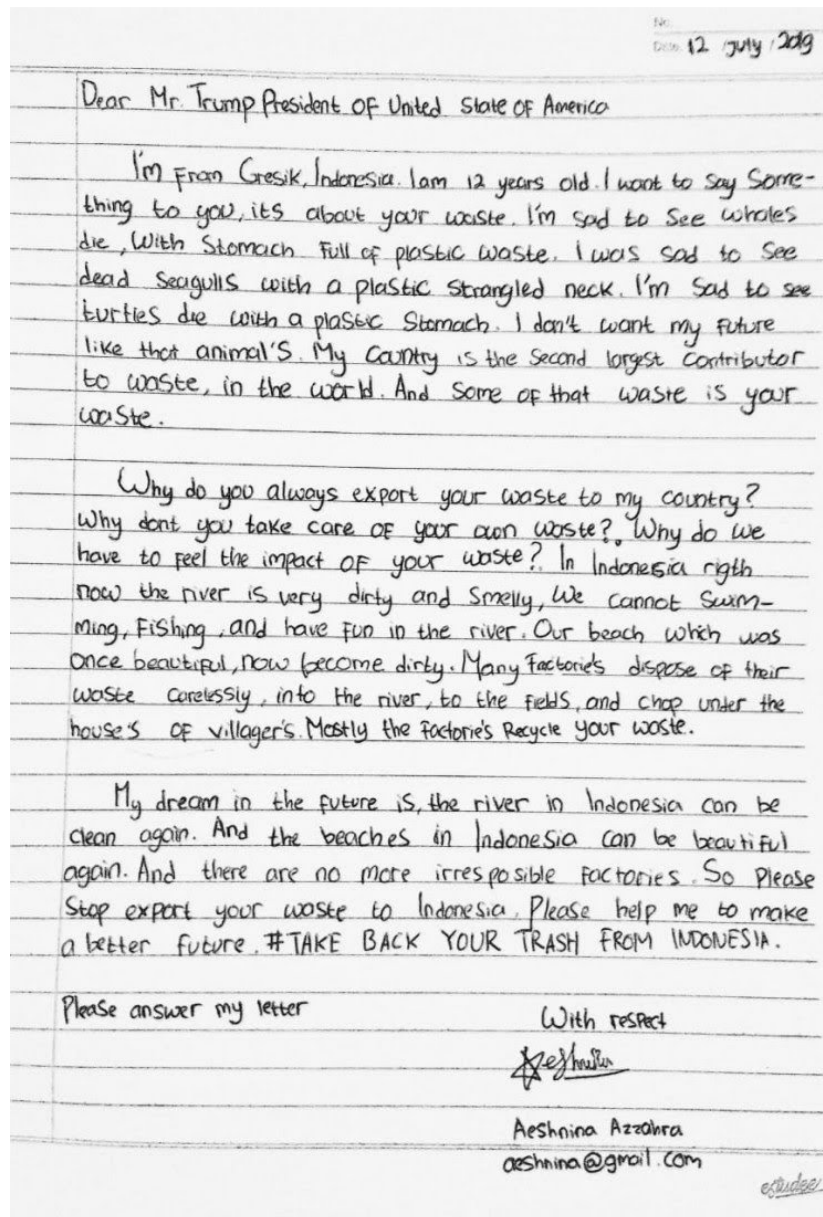 No.
Date. 12 July / 2019
Dear Mr. Trump President OF United State OF America
I'm From Gresik, Indonesia. I am 12 years old. I want to say Some-
thing to you, its about your waste. I'm sad to see whales
die, with Stomach Full of plastic waste. I was sad to see
dead Seagulls with a plastic strangled neck. I'm sad to see
turtles die with a plastic Stomach. I don't want my future
like that animal's. My Country is the second largest Contributor
to waste, in the world. And some of that waste is your
waste.
Why do you always export your waste to my country?
Why dont you take care of your own waste? Why do we
have to feel the impact of your waste? In Indonesia rigth
now the river is very dirty and smelly, We cannot Swim-
ming, Fishing, and have Fun in the river. Our beach which was
once beautiful, now become dirty. Many Factorie's dispose of their
waste carelessly, into the river, to the fields, and chop under the
house's of villager's. Mostly the factorie's Recycle your waste.
My dream in the future is, the river in Indonesia can be
clean again. And the beaches in Indonesia can be beautiful
again. And there are no more irresposible factories. So Please
Stop export your waste to Indonesia. Please help me to make
a better future. #TAKE BACK YOUR TRASH FROM INDONESIA.
Please answer my letter
With respect
Aeshnina Azzahra
aeshnina@gmail.com